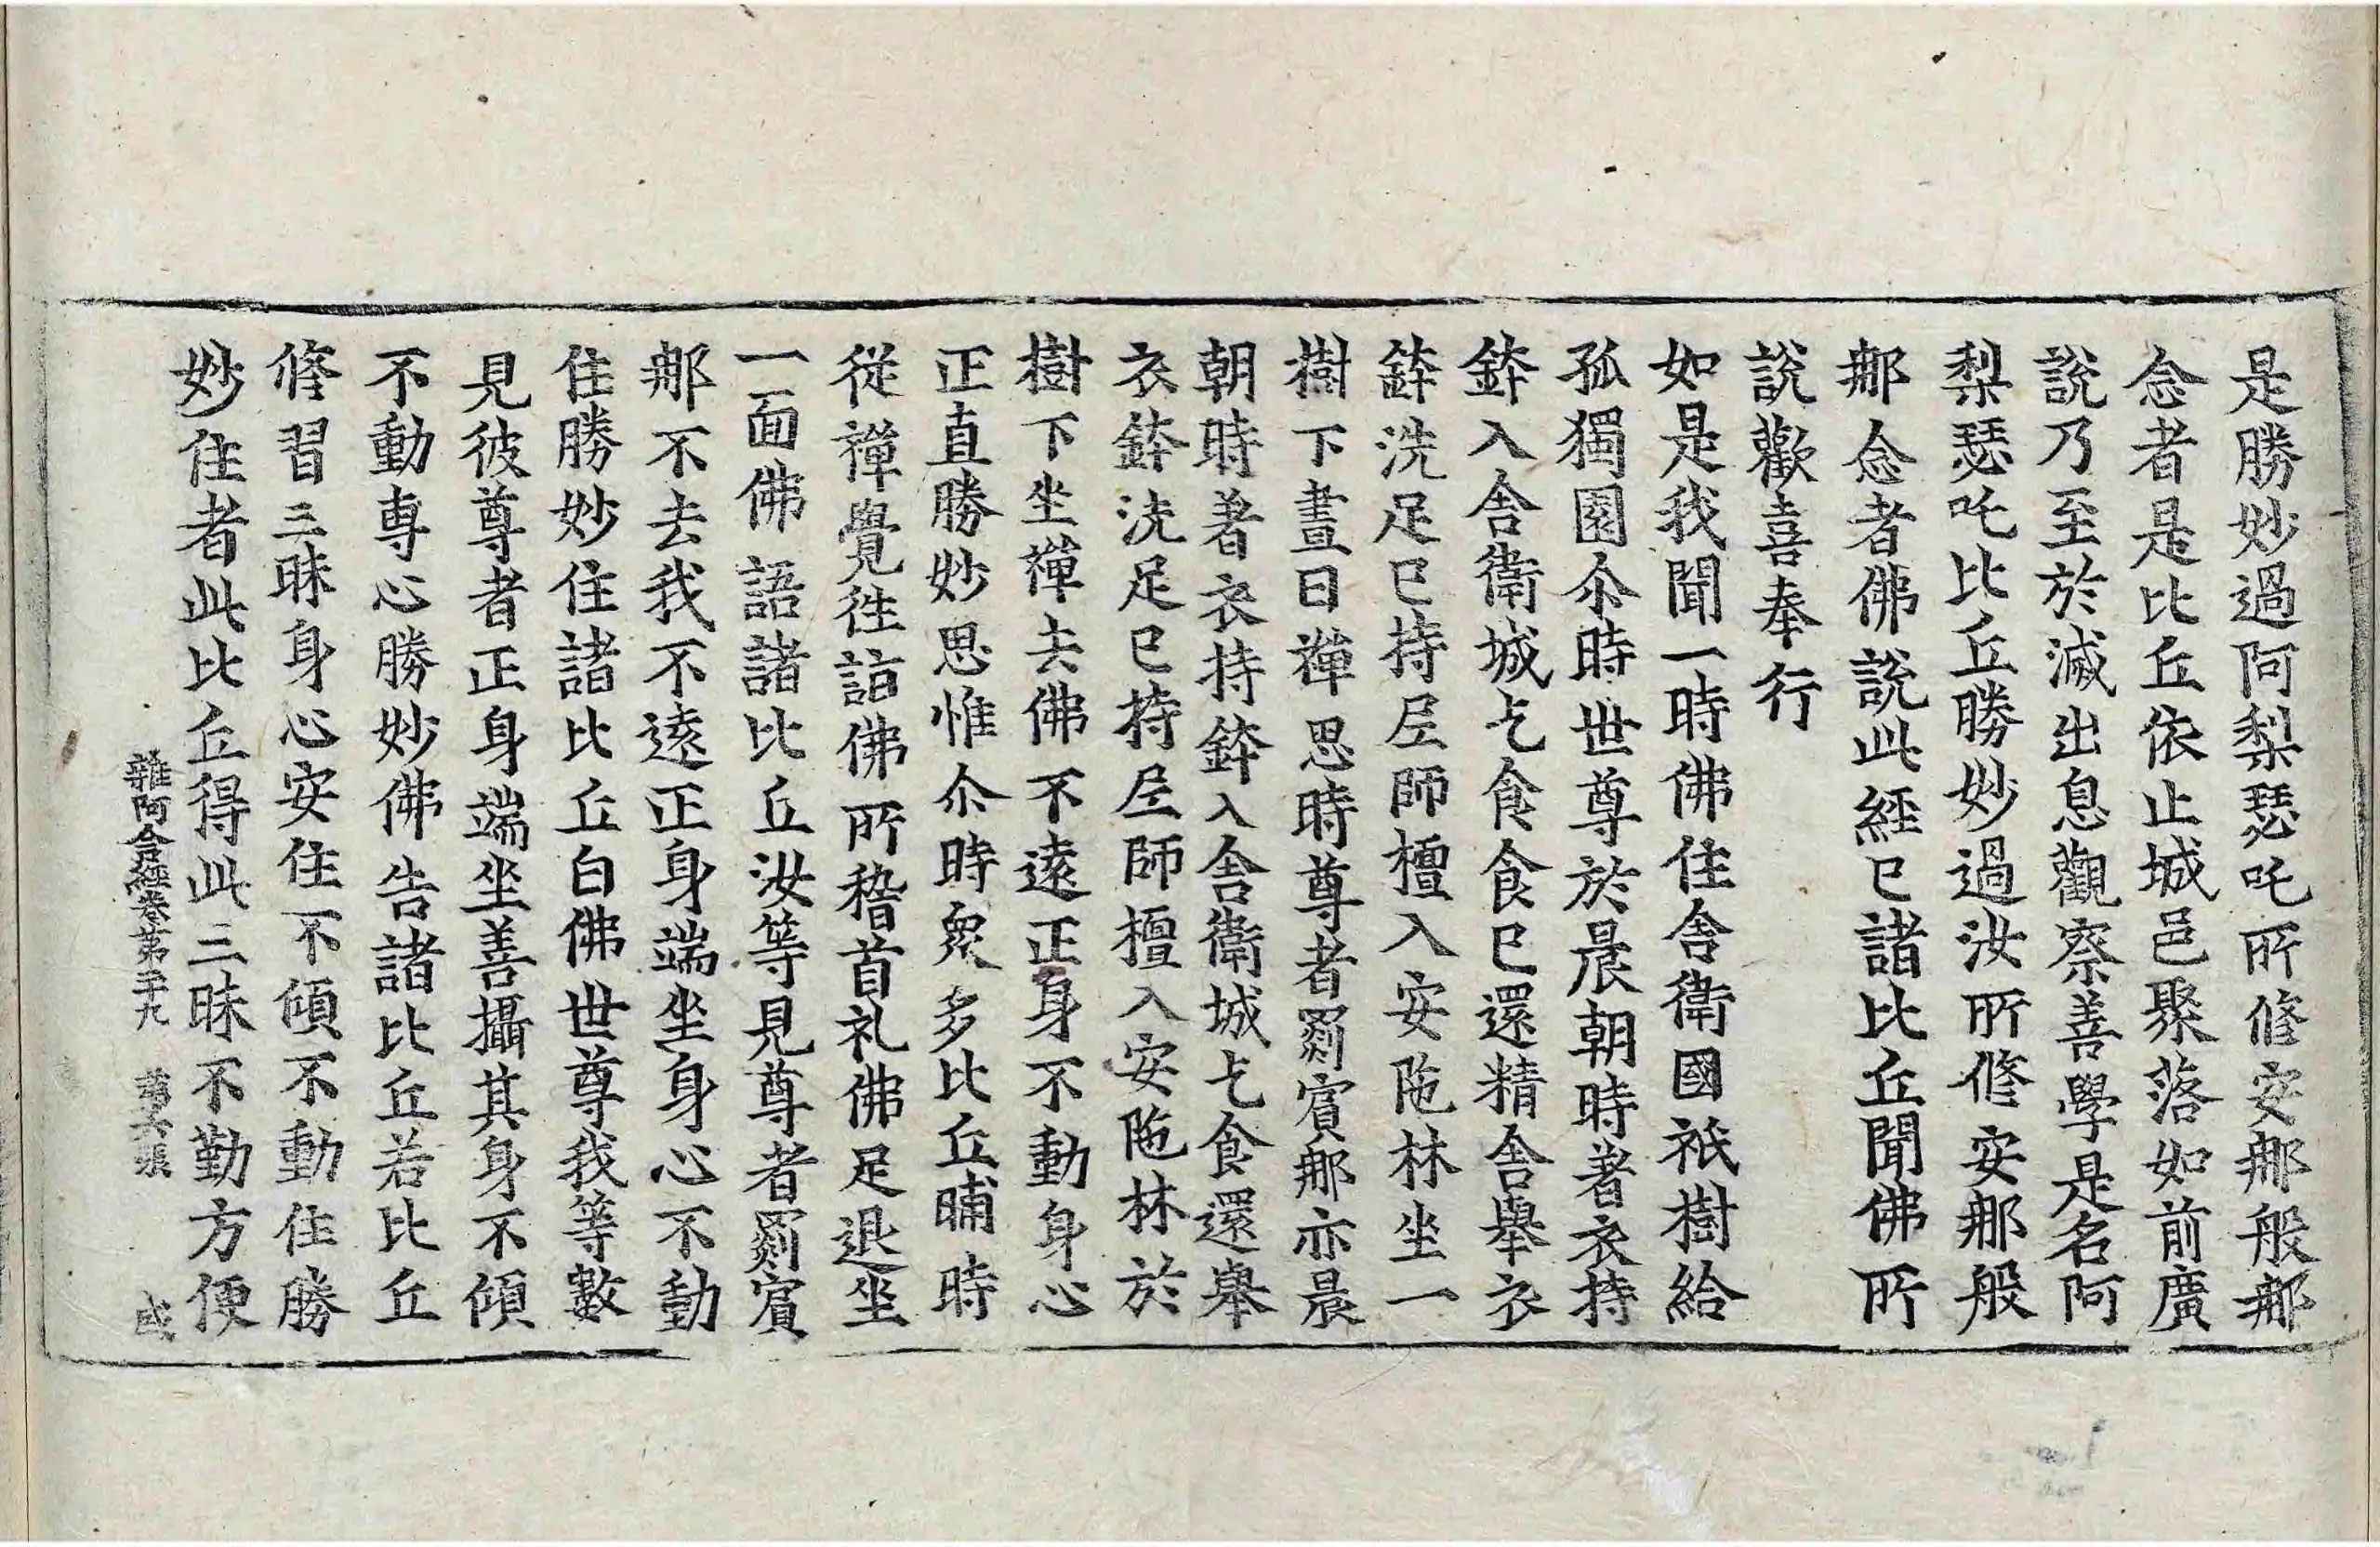 是勝妙過阿梨瑟吒所修安那般那
念者是比丘依止城邑聚落如前廣
說乃至於滅出息觀察善學是名阿
梨瑟吒比丘勝妙過汝所修安那般
那念者佛說此經已諸比丘聞佛所
說歡喜奉行
如是我聞一時佛住舍衛國祇樹給
孤獨園尒時世尊於晨朝時著衣持
鉢入舍衛城乞食食已還精舍舉衣
鉢洗足已持尼師檀入安陁林坐一
樹下晝日禪思時尊者罽賔那亦晨
朝時著衣持鉢入舍衛城乞食還舉
衣鉢洗足已持尼師檀入安陁林於
樹下坐禪去佛不遠正身不動身心
正直勝妙思惟尒時衆多比丘晡時
從禪覺往詣佛所稽首礼佛足退坐
一面佛語諸比丘汝等見尊者罽賔
那不去我不遠正身端坐身心不動
住勝妙住諸比丘白佛世尊我等數
見彼尊者正身端坐善攝其身不傾
不動專心勝妙佛告諸比丘若比丘
修習三昧身心安住不傾不動住勝
妙住者此比丘得此三昧不勤方便
雜阿含經卷第二十九 第六張 盛